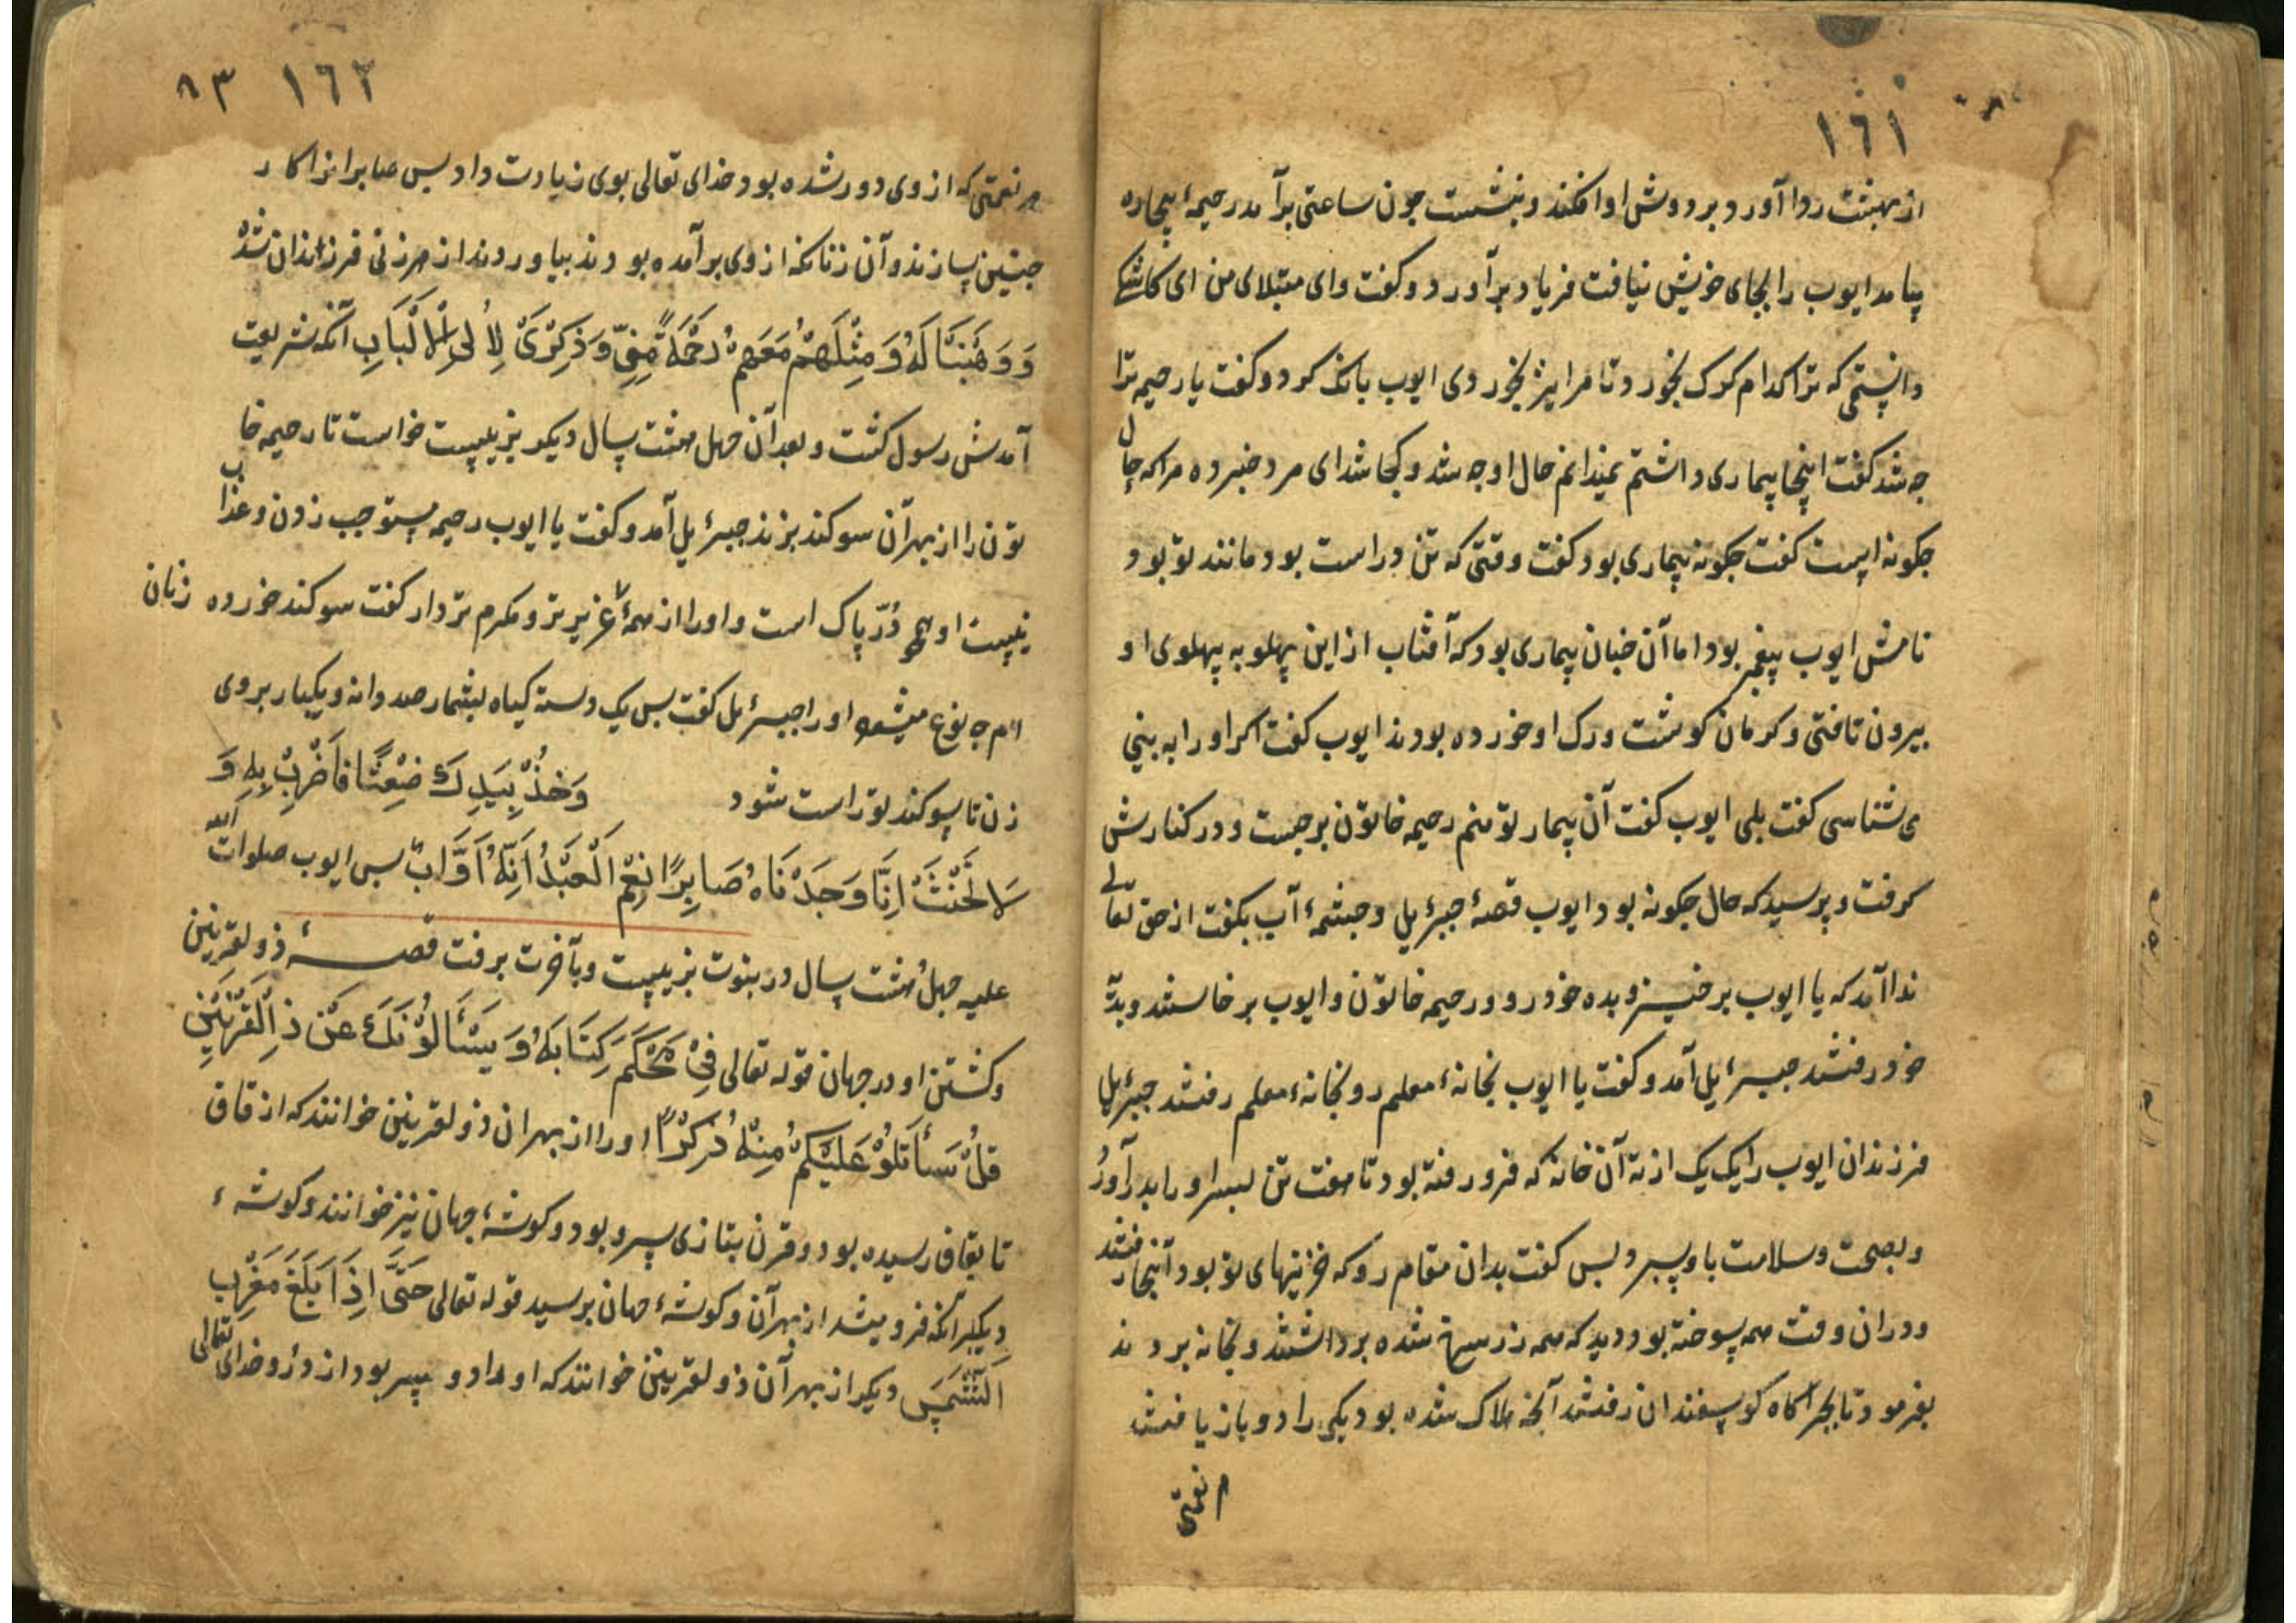 ١٦١
از بهشت ردا آورد و بر دوش او افکند و بنشست چون ساعتی برآمد رحیمهٔ بیچاره
بیامد ایوب را بجای خویش نیافت فریاد برآورد و کفت وای مبتلای من ای کاشکی
دانستمی که ترا کدام کرک بخورد تا مرا نیز بخوردی ایوب بانک کرد و کفت یا رحیمه ترا
چه شد کفت اینجا بیماری داشتم نمیدانم حال او چه شد و کجا شد ای مرد خبر ده مرا که حال
جکونه است کفت جکونه بیماری بود کفت وقتی که تن دراست بود مانند تو بود
نامش ایوب پیغمبر بود اما آن خبان بیماری بود که آفتاب از این پهلو به پهلوی او
بیرون تافتی و کرمان کوشت و رک او خورده بودند ایوب کفت اکر او را به بینی
می شناسی کفت بلی ایوب کفت آن بیمار تو منم رحیمه خاتون برجست و در کنارش
کرفت و پرسید که حال جکونه بود ایوب قصهٔ جبرئیل و چشمهٔ آب بکفت از حق تعالی
ندا آمد که یا ایوب برخیز و بده خود رو و رحیمه خاتون و ایوب برخاستند و بدٓه
خود رفتند جبرئیل آمد و کفت یا ایوب بخانهٔ معلم رو بخانهٔ معلم رفتند جبرئیل
فرزندان ایوب را یک یک از ته آن خانه که فرو رفته بود تا هفت تن پسر او را بدر آورد
و بصحت و سلامت باو سپرد پس کفت بدان مقام رو که خزینهای تو بود آنجا رفتند
و دران وقت همه سوخته بود دید که همه زر سرخ شده برداشتند و بخانه بردند
بفرمود تا بچراکاه کوسفندان رفتند آنچه هلاک شده بود یکی را دو باز یافتند
م نعمتی
١٦٢ ٨٣
هر نعمتی که از وی دور شده بود خدای تعالی بوی زیادت داد پس صابرانرا کار
چنین سازند و آن زنانکه از وی برآمده بودند بیاوردند از هر زنی فرزندان شد
وَوَهَبْنَا لَهُ وَمِثْلَهُمْ مَعَهُمْ رَحْمَةً مِنِّی وَذِكْرَیٰ لِاُولِی الْاَلْبَابِ آنکه شریعت
آمدش رسول کشت و بعد آن چهل هشت سال دیکر بزیست خواست تا رحیمه خا
تون را از بهر آن سوکند بزند جبرئیل آمد و کفت یا ایوب رحیمه مستوجب زدن و عذاب
نیست او همچو دُرّ پاک است و او را از همهٔ عزیزتر و مکرم تر دار کفت سوکند خورده زنان
ام چه نوع میشود او را جبرئیل کفت پس یک دسته کیاه بشمار صد دانه و یکبار بر وی
زن تا سوکند تو راست شود وَخُذْ بِيَدِكَ ضِغْثًا فَاضْرِبْ بِهِ وَ
لَا تَحْنَثْ اِنَّا وَجَدْنَاهُ صَابِرًا نِعْمَ الْعَبْدُ اِنَّهُ اَوَّابٌ پس ایوب صلوات الله
علیه چهل هشت سال در نبوت بزیست و بآخرت برفت قصهٔ ذولقرنین
و کشتن او در جهان قوله تعالی فِیْ مُحْكَمِ كِتَابِهِ وَيَسْئَالُوْنَكَ عَنْ ذِالْقَرْنَيْنِ
قُلْ سَأَتْلُوْ عَلَيْكُمْ مِنْهُ ذِكْرًا او را از بهر ان ذولقرنین خوانند که از قاف
تا بقاف رسیده بود و قرن بتازی سرو بود و کوشهٔ جهان نیز خوانند و کوشهٔ
دیکر آنکه فرو میشد از بهر آن و کوشهٔ جهان برسید قوله تعالی حَتَّیٰ اِذَا بَلَغَ مَغْرِبَ
الشَّمْسِ دیکر از بهر آن ذولقرنین خوانند که او را دو پسر بود از زر و خدای تعالی